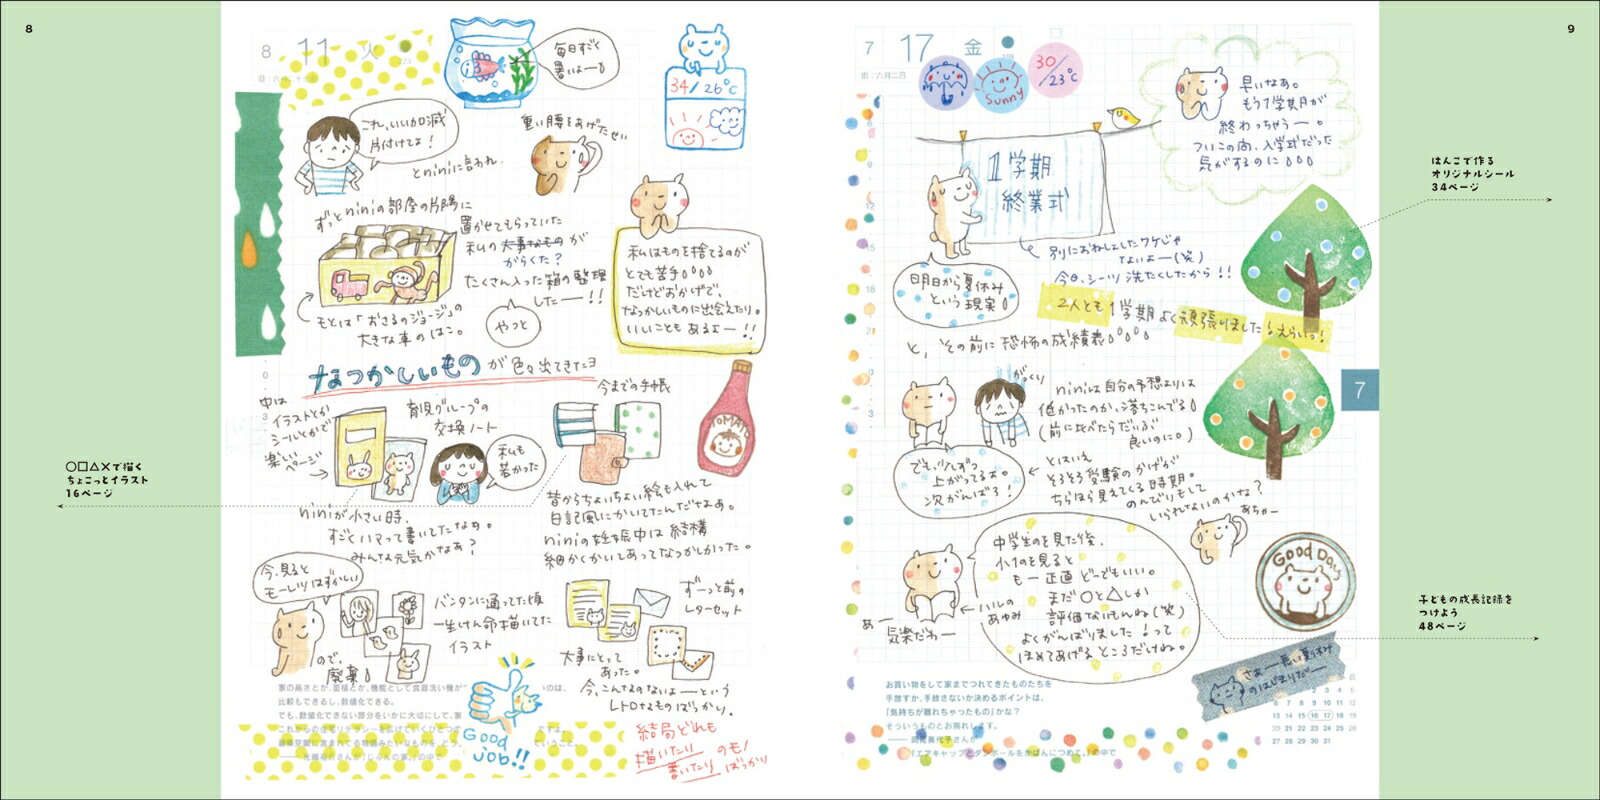 8
8 11 火
旧:六月
毎日すごく
暑いよー
34/26℃
これ、いい加減
片付けてよ!
とniniに言われ、
重い腰をあげたせい
ずっとniniの部屋の片隅に
置かせてもらっていた
私の大事なものが
がらくた?
たくさん入った箱の整理
したー!!
やっと
もとは「おさるのジョージ」の
大きな車のはこ。
私はものを捨てるのが
とても苦手
だけどおかげで、
なつかしいものに出会えたり。
いいこともあるよー!!
なつかしいものが色々出てきたヨ
中は
イラストとか
シールとかで
楽しい
ページ
育児グループの
交換ノート
私も
若かった
今までの手帳
TOMATO
niniが小さい時、
すごくハマって書いてたなぁ。
みんな元気かなぁ?
昔からちょいちょい絵も入れて
日記風にかいてたんだなぁ。
niniの妊娠中は結構
細かくかいてあってなつかしかった。
今、見ると
モーレツにはずかしい
ので、
廃棄
バンタンに通ってた頃
一生けん命描いてた
イラスト
ずーっと前の
レターセット
大事にとって
あった。
今、こんなのないよーという
レトロなものばっかり。
家の高さとか、面積とか、機能として食器洗い機が
比較もできるし、数値化できる。
でも、数値化できない部分をいかに大切にして、家
Good
job!!
結局どれも
描いたり
書いたり
のもの
ばっかり
○□△×で描く
ちょこっとイラスト
16ページ
9
7 17 金
旧:六月二日
Sunny
30/23℃
早いなぁ。
もう1学期が
終わっちゃうー。
ついこの間、入学式だった
気がするのに
1学期
終業式
別におねしょしたワケじゃ
ないよー(笑)
今日、シーツ洗たくしたから!!
明日から夏休み
という現実
2人とも1学期よく頑張りました!えらいっ!
と、その前に恐怖の成績表
がっくり
niniは自分の予想よりは
低かったのか、落ちこんでる
(前に比べたらだいぶ
良いのに)
でも、少しずつ
上がってるよ。
次がんばろ!
とはいえ
そろそろ受験のかげが
ちらほら見えてくる時期。
のんびりもして
いられないのかな?
あちゃー
中学生のを見た後、
小1のを見ると
もー正直どーでもいい。
まだ○と△しか
評価ないもんね(笑)
よくがんばりました!って
ほめてあげるところだけね。
ハルの
あゆみ
あー
気楽だわー
Good Day
さあー長い夏休み
のはじまりだー
お買い物をして家までつれてきたものたちを
手放すか、手放さないか決めるポイントは、
「気持ちが離れちゃったもの」かな?
そういうものとお別れします。
――岡尾美代子さんが
『エアキャップとダンボールをかばんにつめて。』の中で
7
はんこで作る
オリジナルシール
34ページ
子どもの成長記録を
つけよう
48ページ